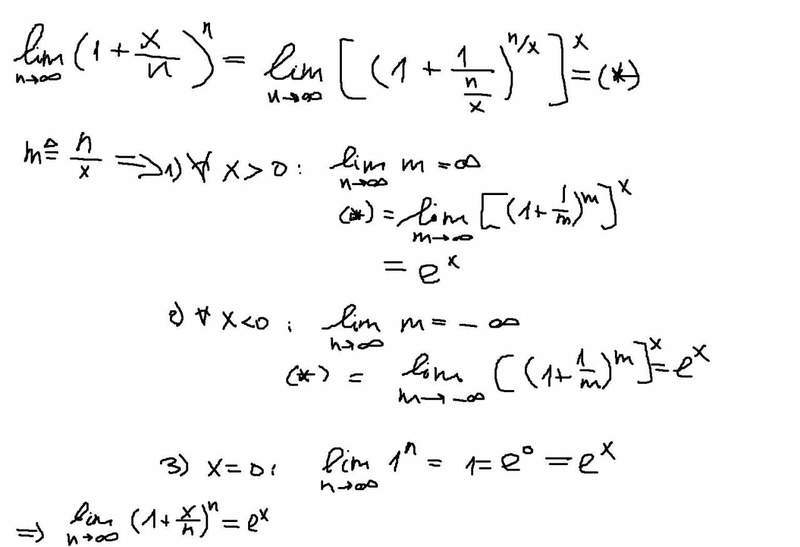 lim_{n→∞} (1 + x/n)^n = lim_{n→∞} [(1 + 1/(n/x))^{n/x}]^x = (*)
m ≜ n/x ⇒ 1) ∀ x > 0 : lim_{n→∞} m = ∞
(*) = lim_{m→∞} [(1 + 1/m)^m]^x
= e^x
2) ∀ x < 0 : lim_{n→∞} m = -∞
(*) = lim_{m→-∞} [(1 + 1/m)^m]^x = e^x
3) x = 0 : lim_{n→∞} 1^n = 1 = e^0 = e^x
⇒ lim_{n→∞} (1 + x/n)^n = e^x